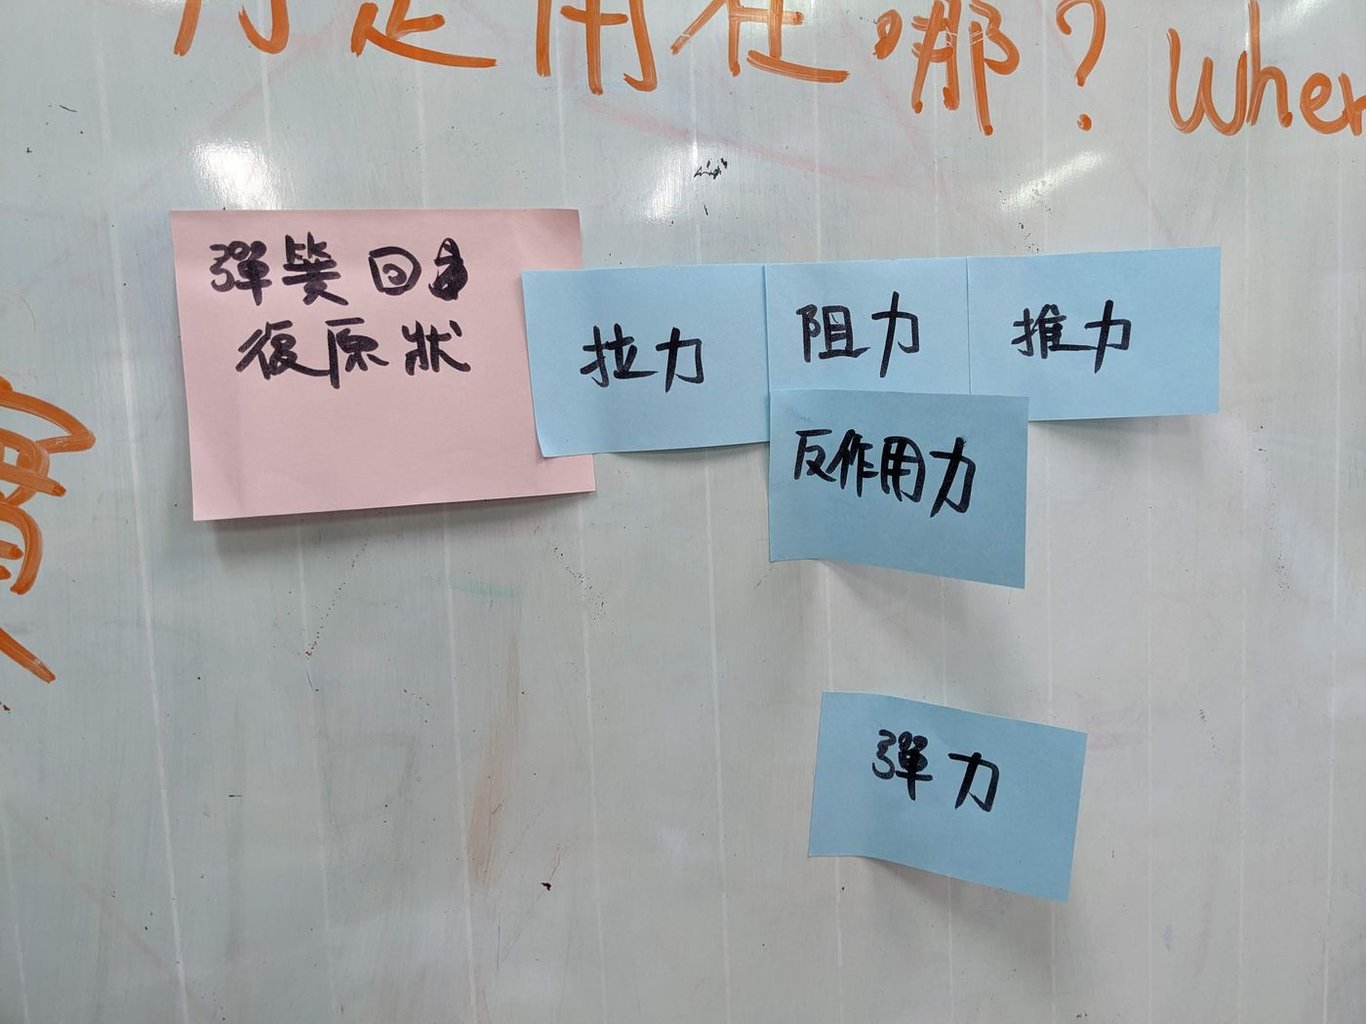 力是用在哪？Wher
彈簧回
復原狀
拉力
阻力
推力
反作用力
彈力